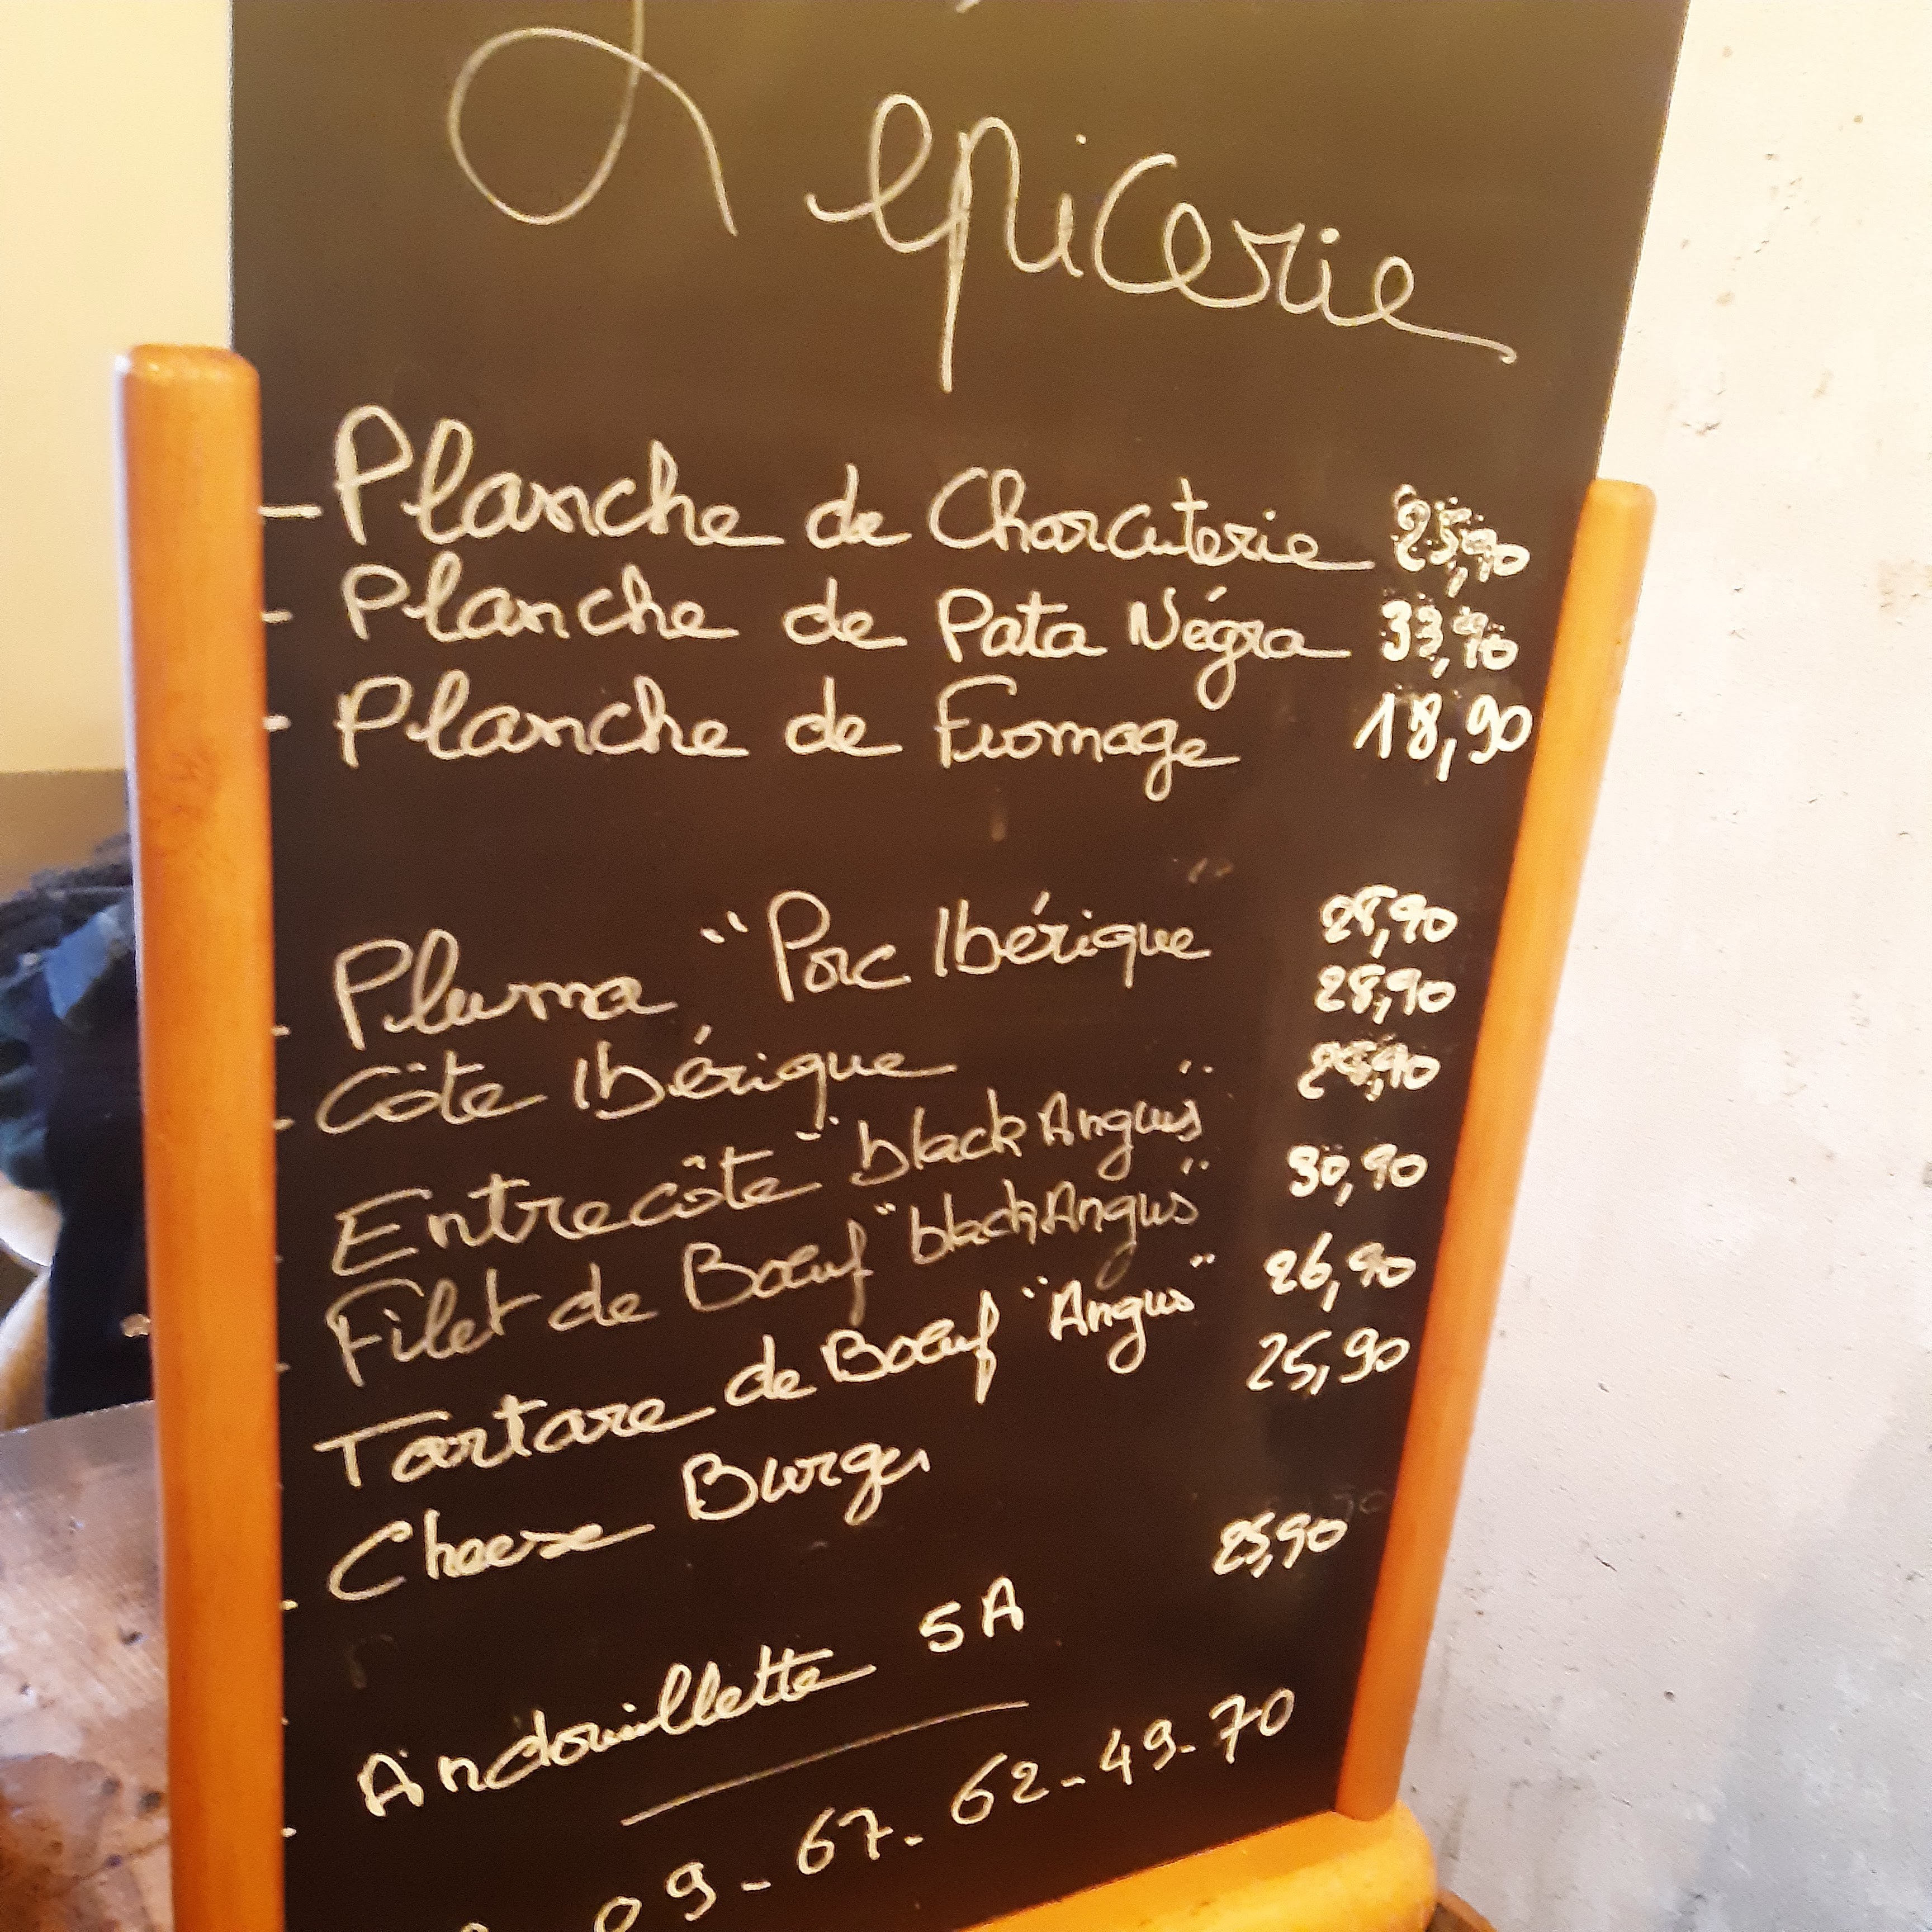 L'épicerie
- Planche de Charcuterie 25,90
- Planche de Pata Négra 33,90
- Planche de Fromage 18,90
- Pluma "Porc Ibérique" 28,90
- Côte Ibérique 28,90
- Entrecôte "black Angus" 28,90
- Filet de Bœuf "black Angus" 30,90
Tartare de Bœuf "Angus" 26,90
- Cheese Burger 25,90
- Andouillette 5A 25,90
09-67-62-49-70